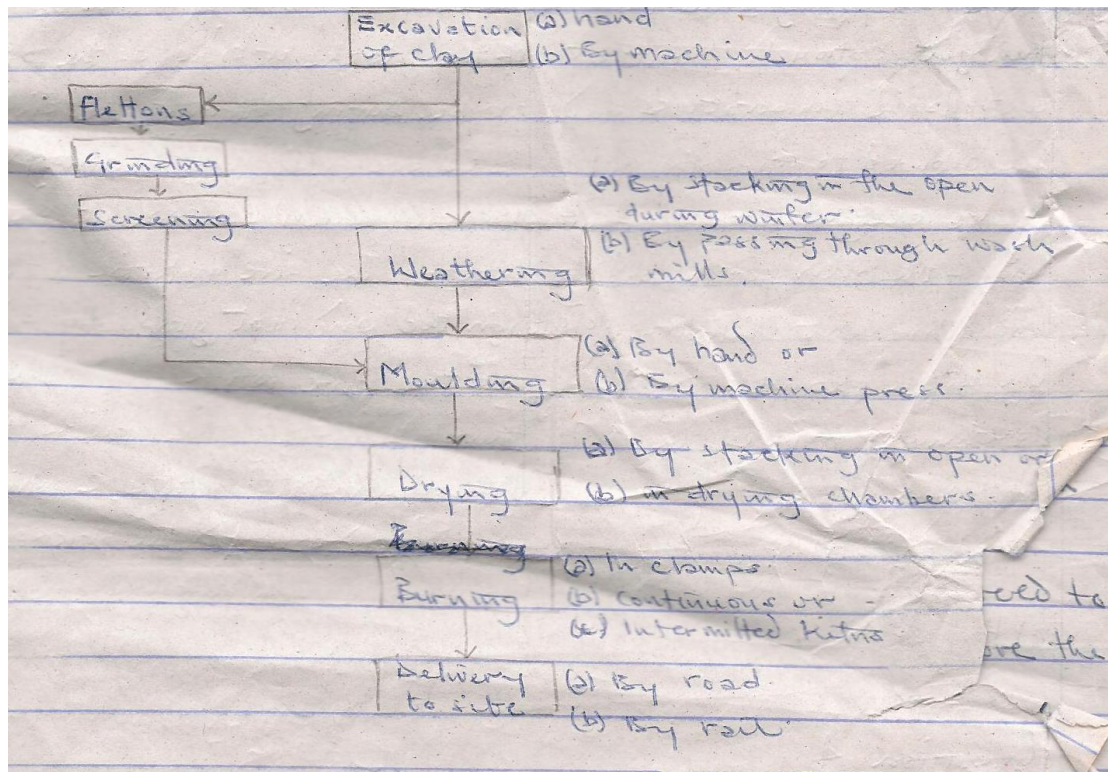 Excavation
of clay
(a) hand
(b) By machine
Flettons
Grinding
Screening
(a) By stacking in the open
during winter.
Weathering
(b) By passing through wash
mills.
Moulding
(a) By hand or
(b) By machine press.
Drying
(a) By stacking in open or
(b) in drying chambers.
Burning
(a) In clamps.
(b) continuous or
(c) Intermitted kilns
to
the
Delivery
to site
(a) By road.
(b) By rail.